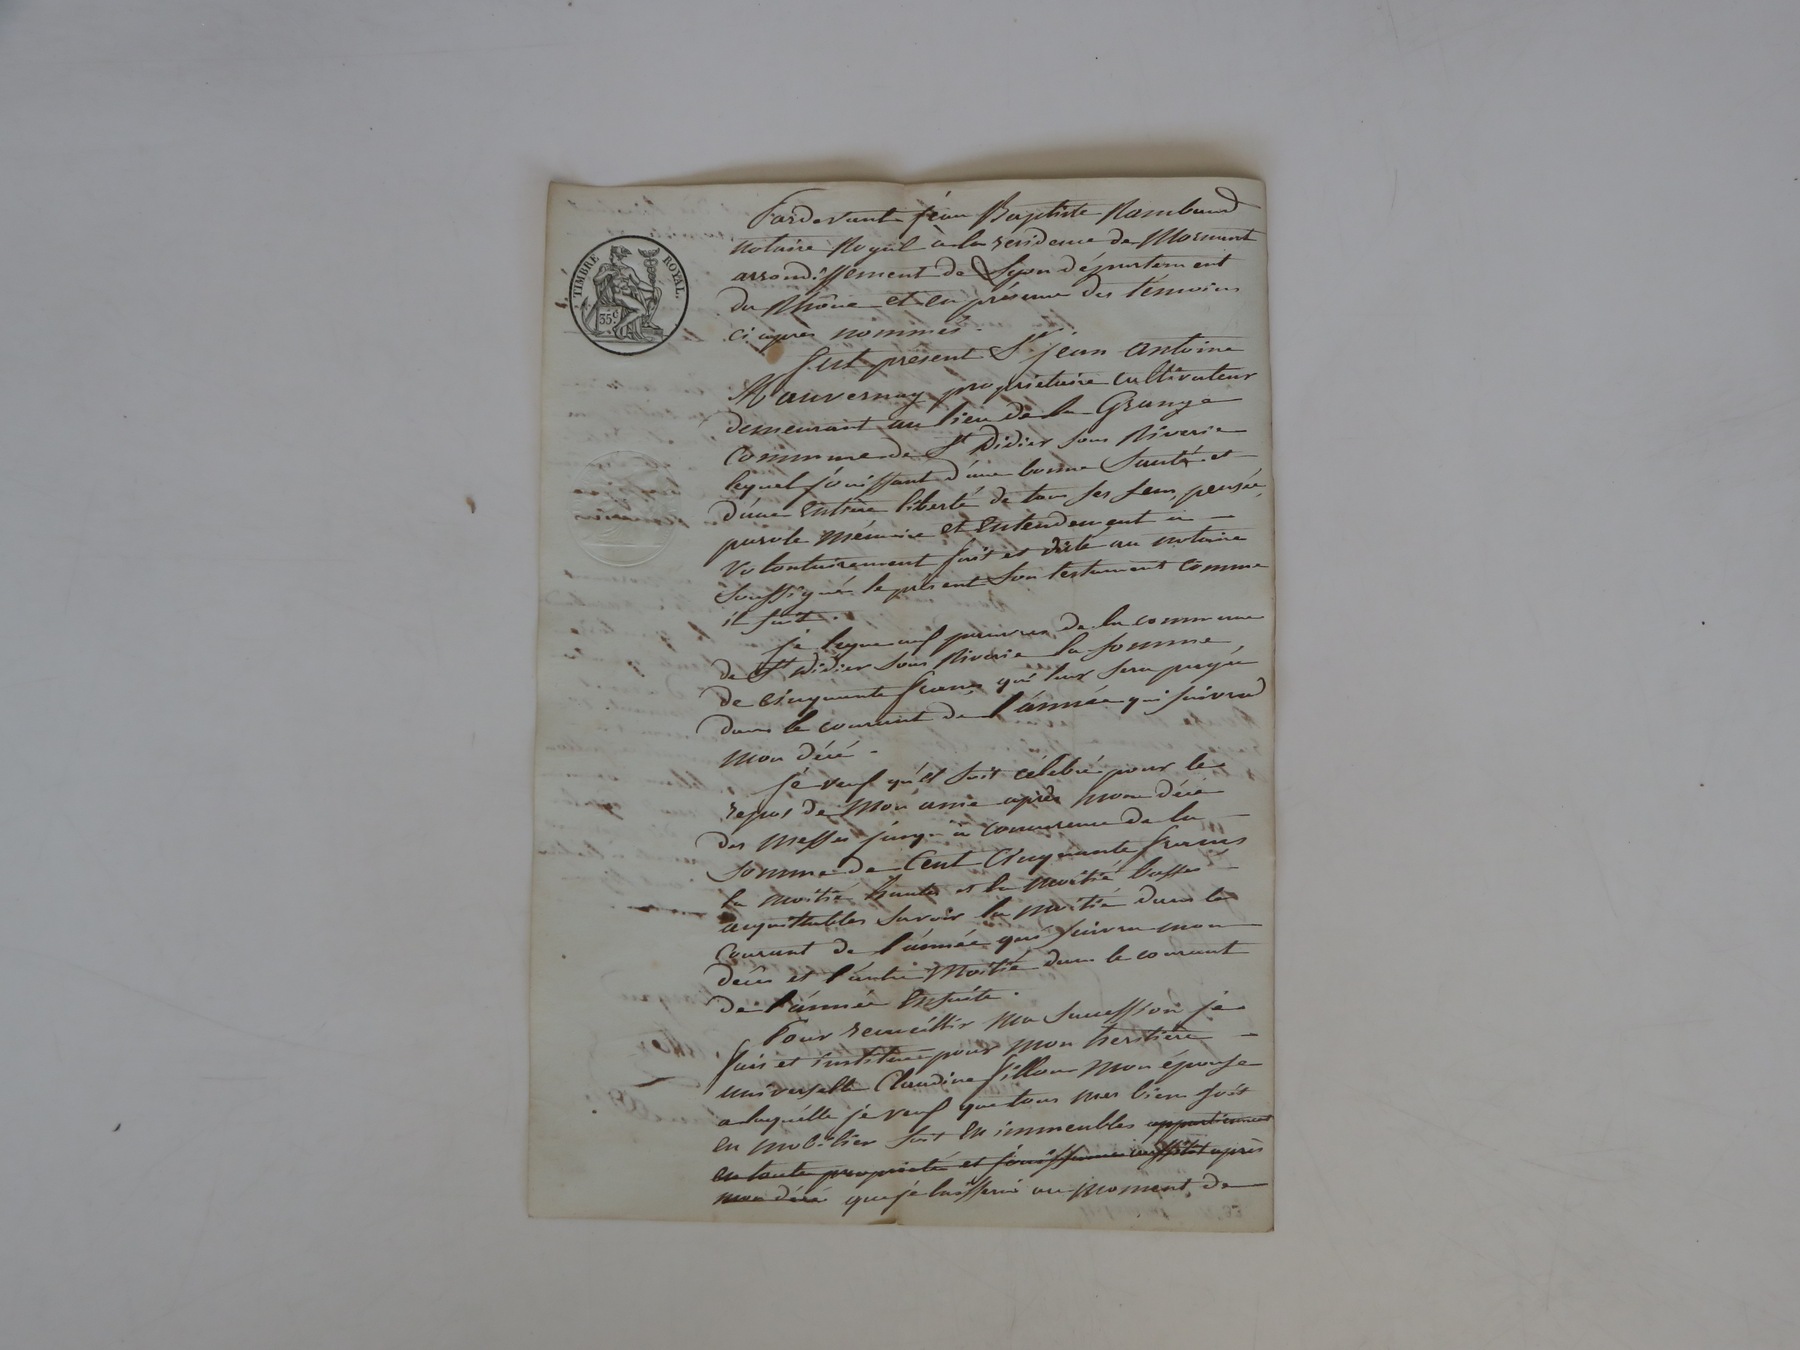 TIMBRE ROYAL.
35c
Pardevant jéan Baptiste Rambaud
notaire Royal à la residence de Mornant
arrondissement de Lyon département
du Rhône et en présence des témoins
ci après nommés.
fut présent Sr jean antoine
Mauvernay propriétaire cultivateur
demeurant au lieu de la Grange
Commune de St Didier sous Riverie
lequel jouissant d'une bonne santé et
d'une entière liberté de tous ses sens, pensée,
parole mémoire et entendement a
volontairement fait et dicté au notaire
soussigné le présent son testament comme
il suit.
je legue aux pauvres de la commune
de St Didier sous Riverie la somme
de cinquante francs qui leur sera payée
dans le courant de l'année qui suivra
mon décé
je veux qu'il soit célébré pour le
repos de mon ame après mon décé
des messes jusqu'à concurence de la
somme de Cent Cinquante francs
la moitié hautes et la moitié basses
acquittables savoir la moitié dans le
courant de l'année qui suivra mon
décès et l'autre moitié dans le courant
de l'année ensuite.
Pour recueillir ma succession je
fais et institue pour mon heritière
universelle Claudine fillon mon épouse
a laquelle je veux que tous mes biens soit
en mobilier soit en immeubles appartiennent
en toute propriété et jouissance aussitot après
mon décé que je laisserai au moment de